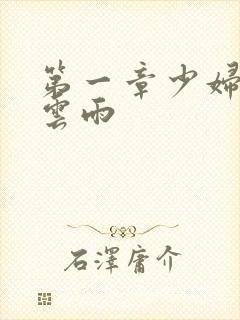 第一章少婦
雲雨
石澤庸介